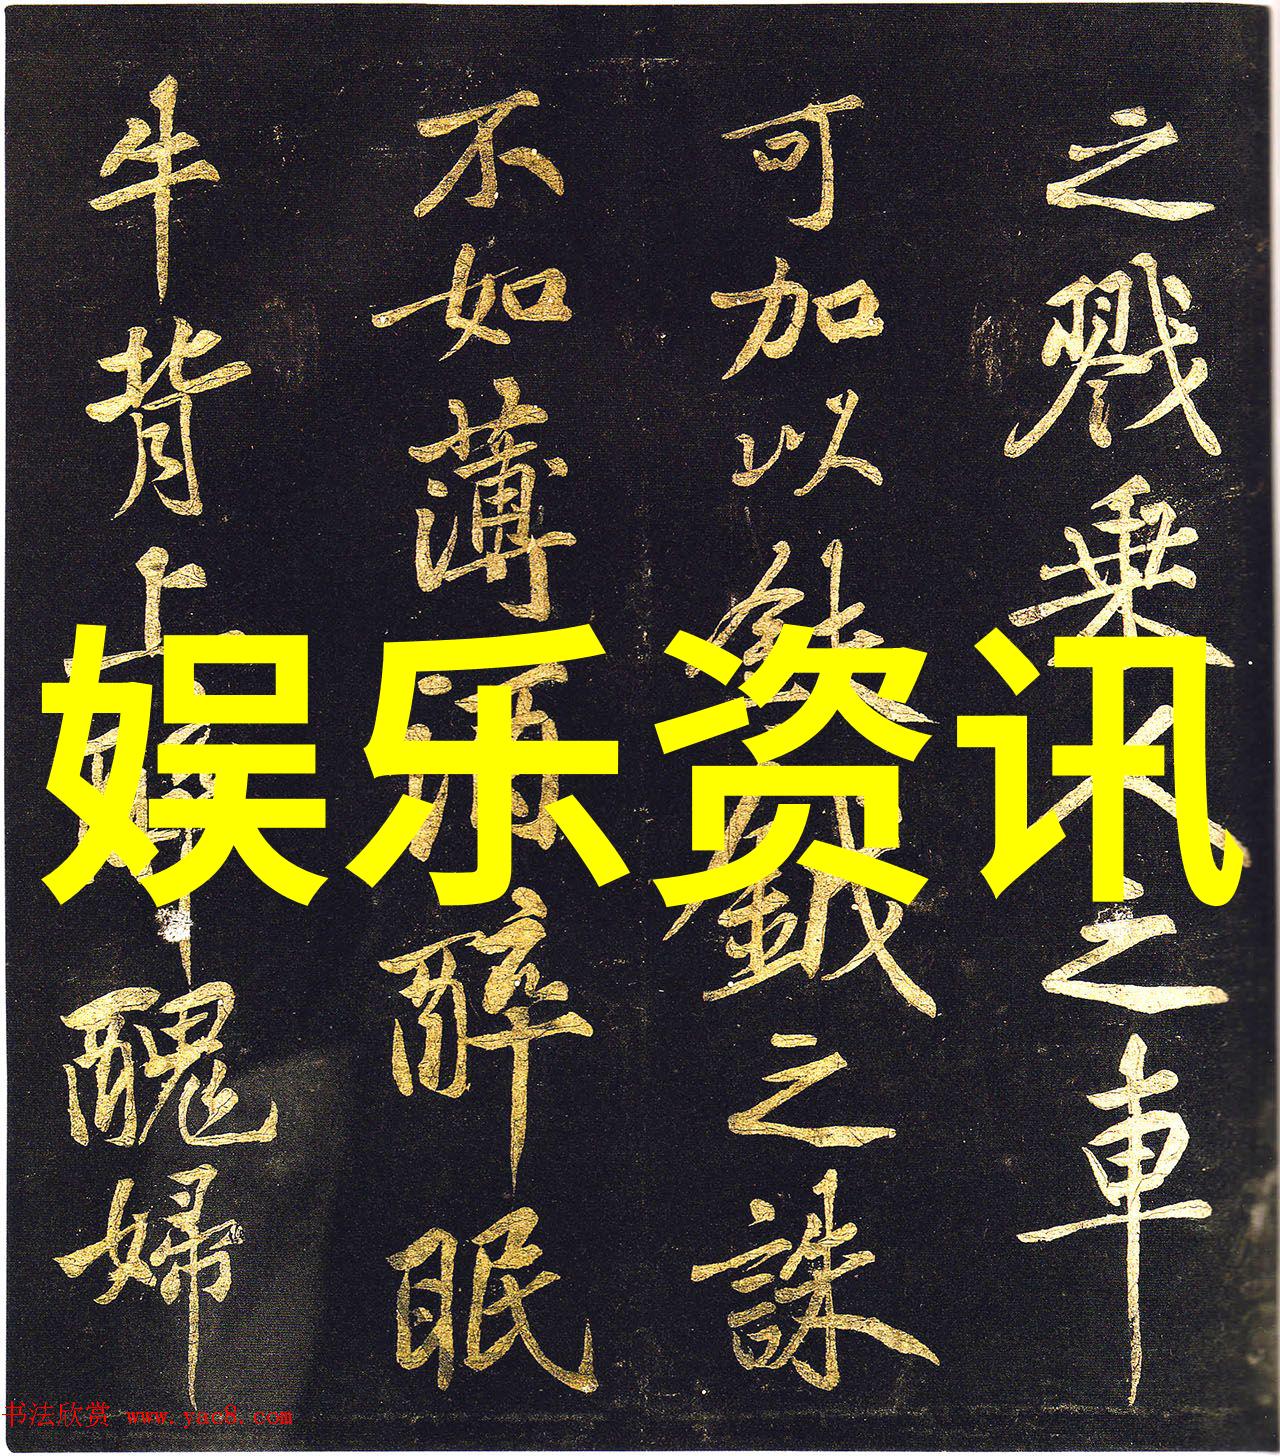 之戮乘人之車
可加以鈇鉞之誅
不如薄酒醉眠
牛背上醜婦
娱乐资讯
书法欣赏 www.yac8.com